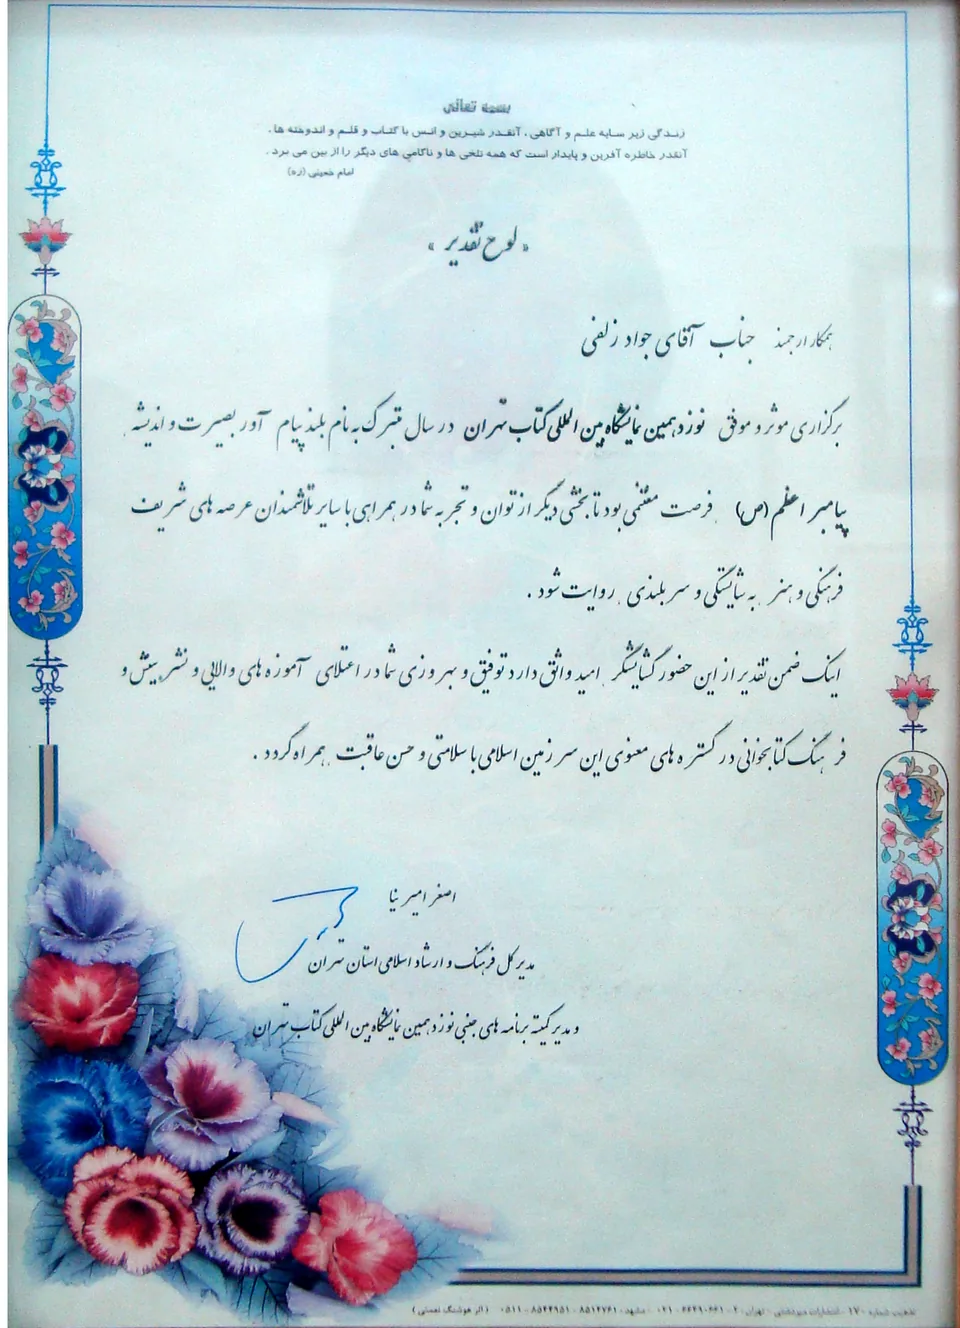 بسمه تعالی
زندگی زیر سایه علم و آگاهی ، آنقدر شیرین و انس با کتاب و قلم و اندوخته ها ،
آنقدر خاطره آفرین و پایدار است که همه تلخی ها و ناکامی های دیگر را از بین می برد .
امام خمینی (ره)
« لوح تقدیر »
همکار ارجمند جناب آقای جواد زلفی
برگزاری موثر و موفق نوزدهمین نمایشگاه بین المللی کتاب تهران در سال متبرک به نام بلند پیام آور بصیرت و اندیشه ,
پیامبر اعظم (ص) , فرصت مغتنمی بود تا بخشی دیگر از توان و تجربه شما در همراهی با سایر تلاشمندان عرصه های شریف
فرهنگی و هنر , به شایستگی و سربلندی , روایت شود .
اینک ضمن تقدیر از این حضور گشایشگر , امید واثق دارد توفیق و بهروزی شما در اعتلای آموزه های والایی و نشر بینش و
فرهنگ کتابخوانی در گستره های معنوی این سرزمین اسلامی با سلامتی و حسن عاقبت , همراه گردد .
اصغر امیرنیا
مدیر کل فرهنگ و ارشاد اسلامی استان تهران
و مدیر کمیته برنامه های جنبی نوزدهمین نمایشگاه بین المللی کتاب تهران
تذهیب شماره ۱۷۰ - انتشارات میردشتی - تهران: ۲ - ۶۶۴۹۰۶۶۱ - ۰۲۱ مشهد: ۸۵۱۲۷۶۱ - ۸۵۴۴۹۵۱ - ۰۵۱۱ (اثر هوشنگ نعمتی)